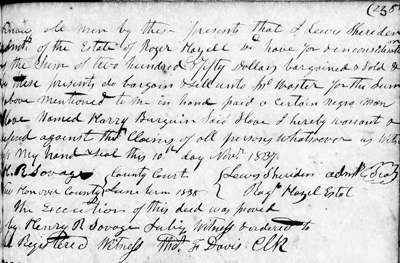 (235
Know all men by these presents that I Lewis Sheridan
Admr of the Estate of Roger Hazell Dc have for & in consideration
of the Sum of two hundred & fifty Dollars bargained & Sold &
by these presents do bargain & Sell unto master for the Sum
above mentioned to me in hand paid a certain negro man
Slave Named Harry Burguin Said Slave I hereby warrant &
defend against the Claims of all persons whatever as Witness
my hand & Seal this 10th day Novr. 1837.
H. R Savage } County Court { Lewis Sheridan admr Seal
New Hanover County } June term 1838 { Rogr Hazel Estat
The Execution of this deed was proved
by Henry R Savage Subg Witness & ordered to
Registered Witness Thos. F Davis Clk